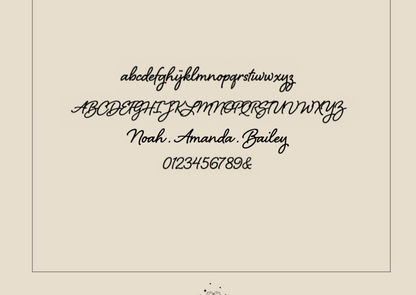 abcdefghijklmnopqrstuvwxyz
ABCDEFGHIJKLMNOPQRSTUVWXYZ
Noah . Amanda . Bailey
0123456789&